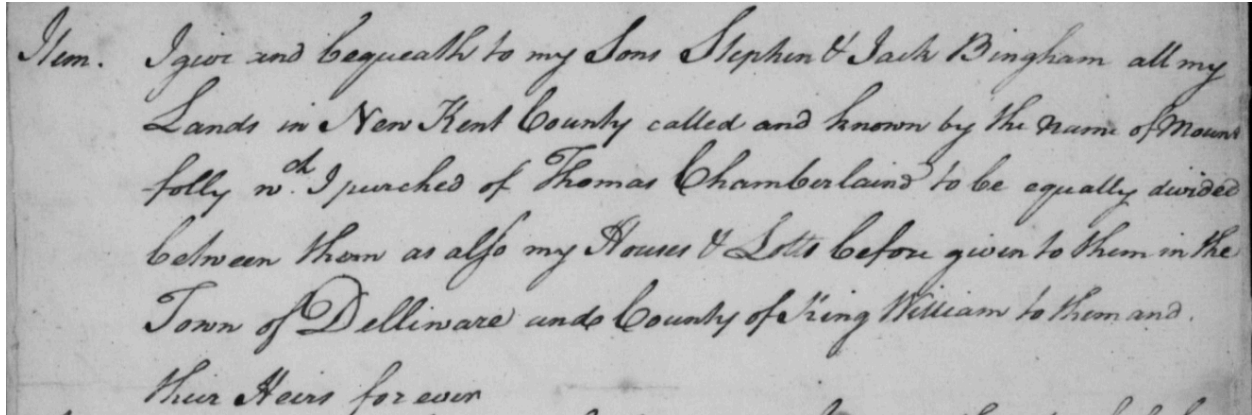 Item. I give and bequeath to my Sons Stephen & Jack Bingham all my
Lands in New Kent County called and known by the name of Mount
folly wch. I purched of Thomas Chamberlaine to be equally divided
between them as also my Houses & Lotts before given to them in the
Town of Delliware and County of King William to them and
their Heirs for ever